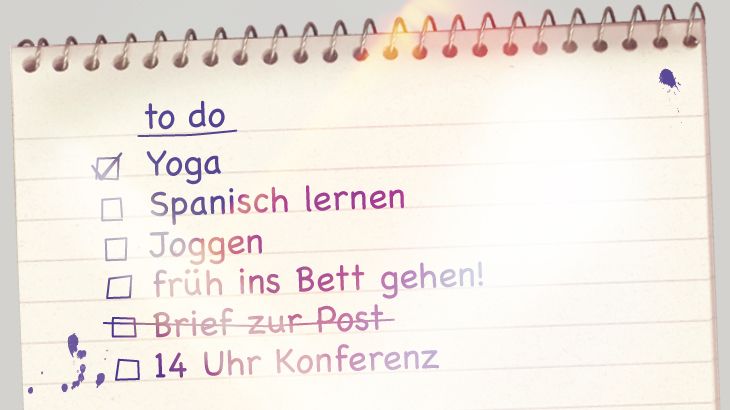 to do
Yoga
Spanisch lernen
Joggen
früh ins Bett gehen!
Brief zur Post
14 Uhr Konferenz